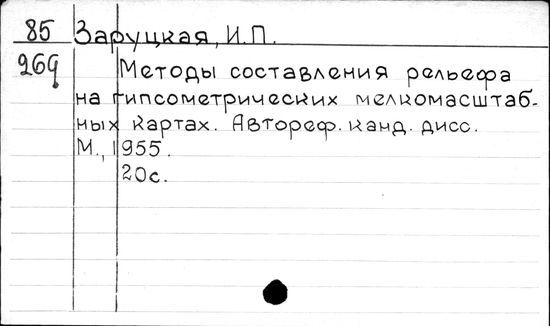 85 Заруцкая, И.П.
269 Методы составления рельефа
на гипсометрических мелкомасштаб-
ных картах. Автореф. канд. дисс.
М., 1955.
20с.